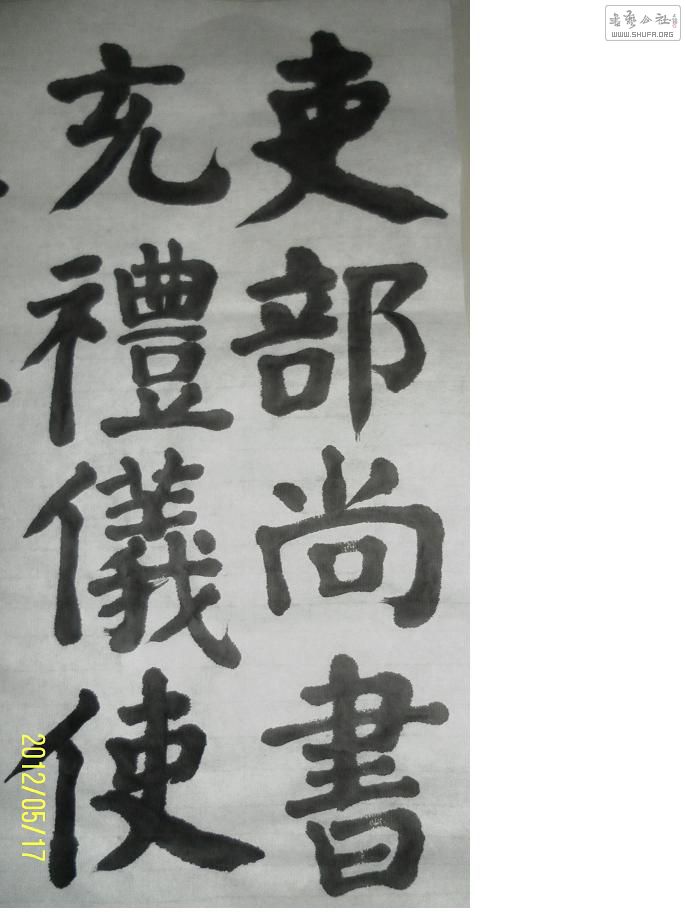 吏部尚書
充禮儀使
2012/05/17
書藝公社
WWW.SHUFA.ORG